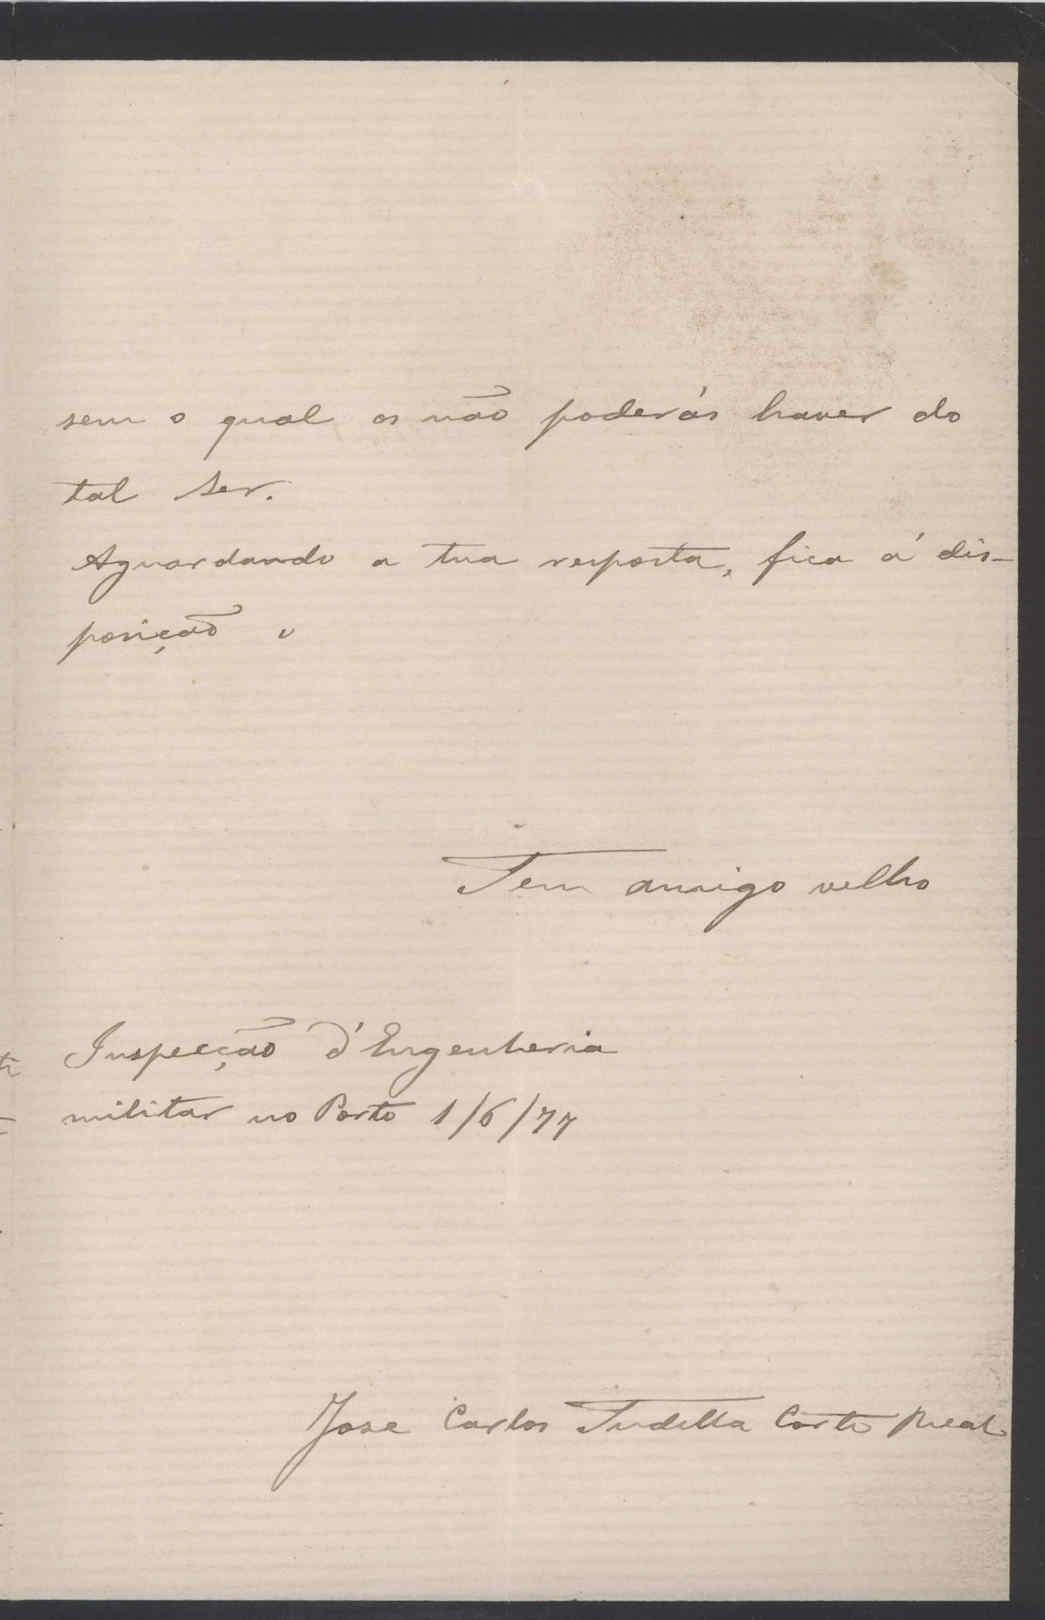 sem o qual os não poderás haver do
tal ser.
Aguardando a tua resposta, fica á dis-
posição o
Teu amigo velho
Inspecção d'Engenheria
militar no Porto 1/6/77
Jose Carlos Corte Real